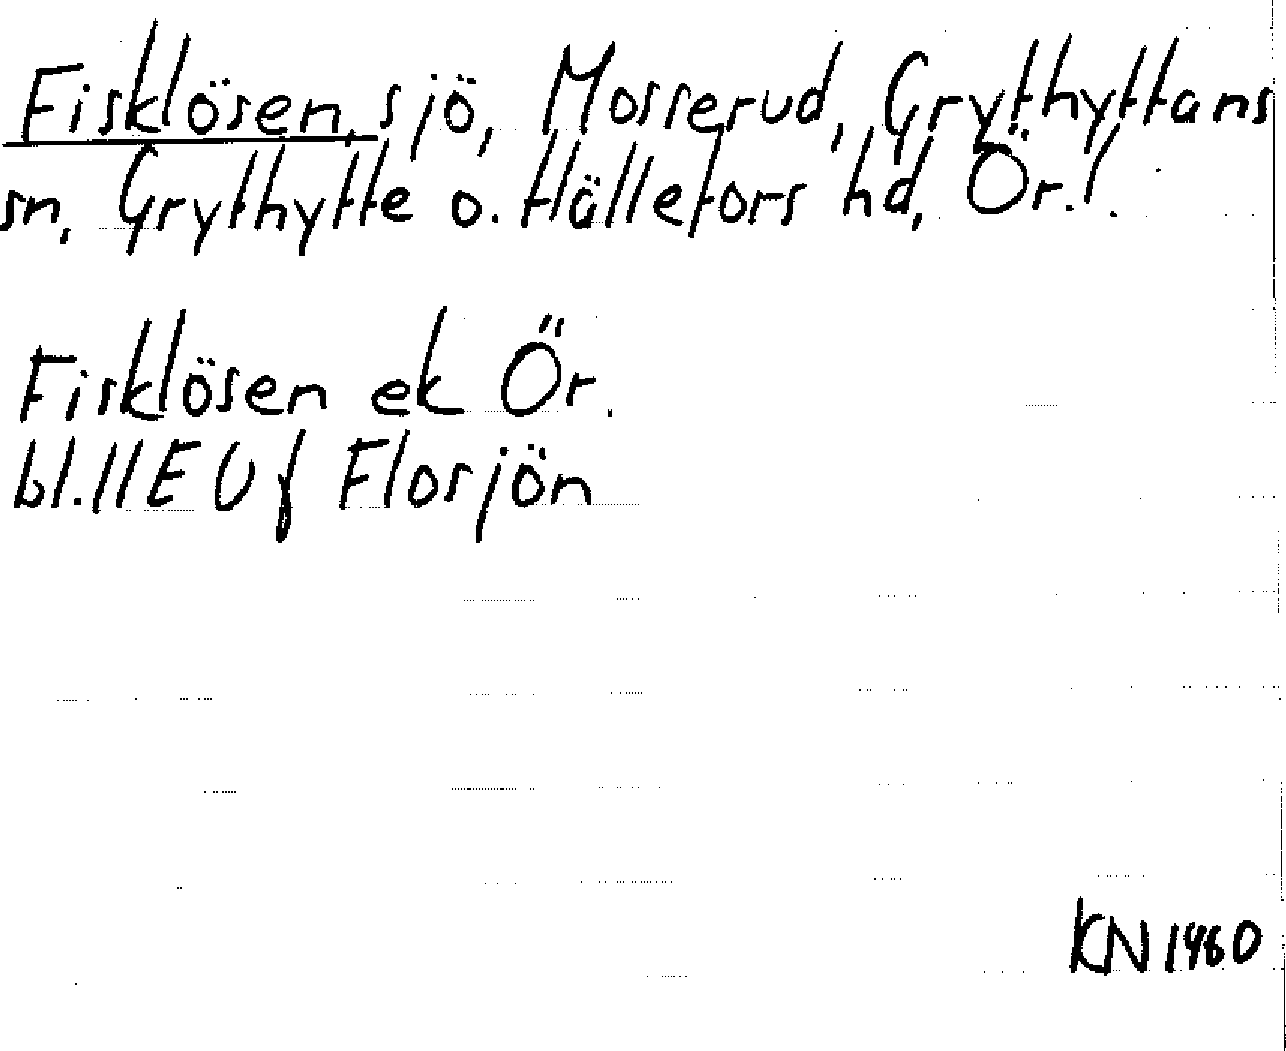 Fisklösen, sjö, Mosserud, Grythyttans
sn, Grythytte o. Hällefors hd, Ör. l.
Fisklösen ek Ör.
bl. 11 E 0 f Florsjön
KN 1960